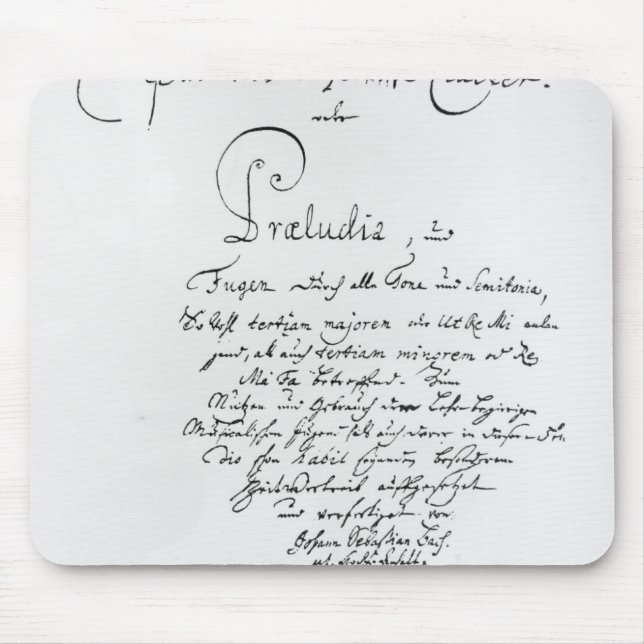 Clavier.
oder
Præludia, und
Fugen durch alle Tone und Semitonia,
So wohl tertiam majorem oder Ut Re Mi anlan
gend, als auch tertiam minorem od Re
Mi Fa betreffend. Zum
Nutzen und Gebrauch der Lehr-begierigen
Musicalischen Jugend als auch derer in diesem
stu
dio schon habil seyenden besonderem
Zeitvertreib auffgesetzet
und verfertiget von
Johann Sebastian Bach.